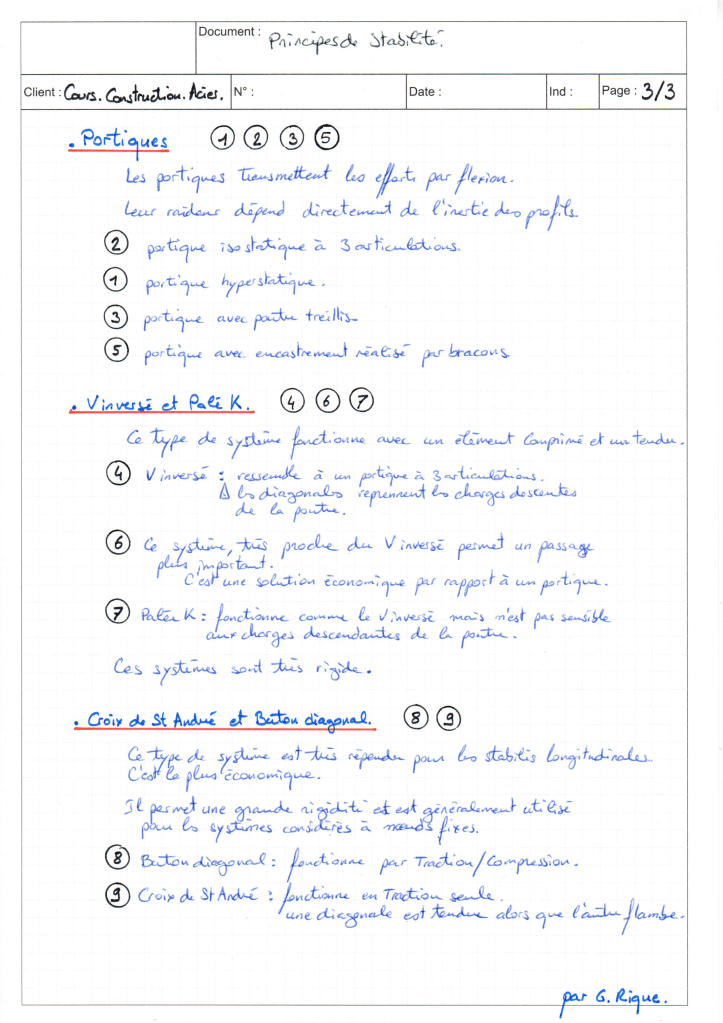 Document : Principes de Stabilité.
Client : Cours. Construction. Acier. N° : Date : Ind : Page : 3/3
• Portiques 1 2 3 5
Les portiques transmettent les efforts par flexion.
Leur raideur dépend directement de l'inertie des profils.
2 portique isostatique à 3 articulations.
1 portique hyperstatique.
3 portique avec poutre treillis
5 portique avec encastrement réalisé par bracons
• V inversé et Palé K. 4 6 7
Ce type de système fonctionne avec un élément comprimé et un tendu.
4 V inversé : ressemble à un portique à 3 articulations.
⚠ les diagonales reprennent les charges descentes
de la poutre.
6 Ce système, très proche du V inversé permet un passage
plus important.
C'est une solution économique par rapport à un portique.
7 Palée K : fonctionne comme le V inversé mais n'est pas sensible
aux charges descendantes de la poutre.
Ces systèmes sont très rigide.
• Croix de St André et Bâton diagonal. 8 9
Ce type de système est très répendu pour les stabilis longitudinales.
C'est le plus économique.
Il permet une grande rigidité et est généralement utilisé
pour les systèmes considérés à nœuds fixes.
8 Baton diagonal : fonctionne par Traction/Compression.
9 Croix de St André : fonctionne en Traction seule.
une diagonale est tendue alors que l'autre flambe.
par G. Rique.